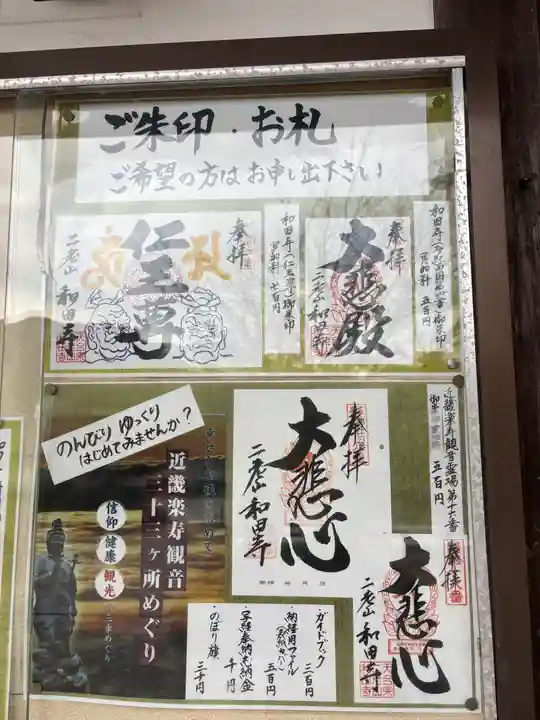 ご朱印・お札
ご希望の方はお申し出下さい
奉拝
大悲殿
二老山 和田寺
五百円
和田寺(仁王尊)御朱印
冥加料 七百円
奉拝
仁王尊
二老山 和田寺
近畿楽寿観音霊場第十六番
五百円
奉拝
大悲心
二老山 和田寺
奉拝
大悲心
二老山 和田寺
のんびり ゆっくり
はじめてみませんか?
近畿楽寿観音
三十三ヶ所めぐり
信仰
健康
観光
ガイドブック 三百円
納経用ファイル
五百円
写経奉納志納金
千円
のぼり旗 三千円